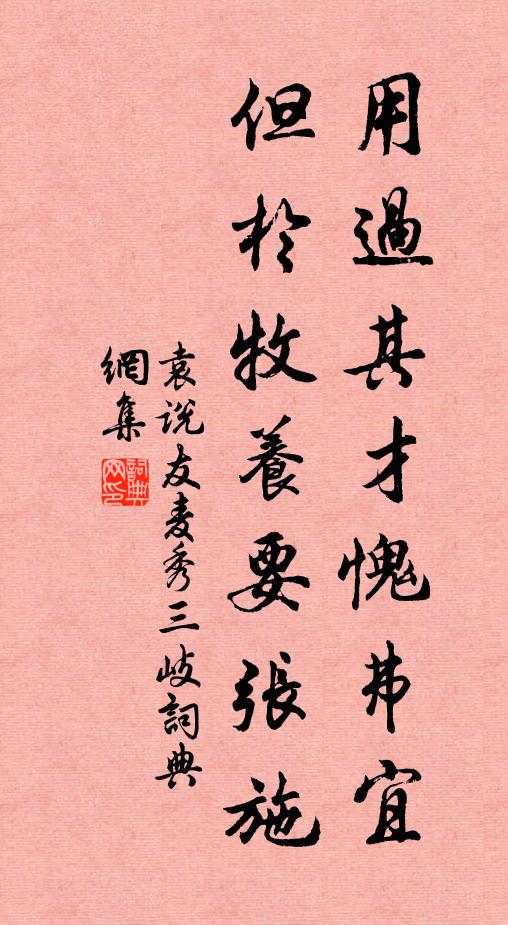 用過其才愧弗宜
但於牧養要張施
袁說友麦秀三岐詞典
網集
詞典網印